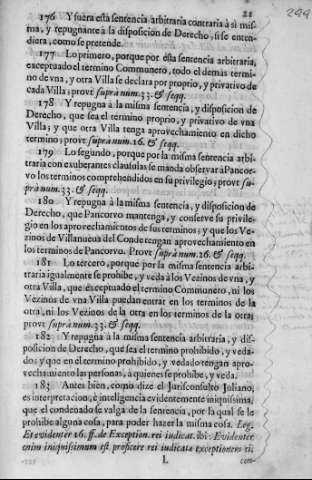 21
244
176 Y fuera esta sentencia arbitraria contraria à si mis-
ma, y repugnante à la disposicion de Derecho, si se enten-
diera, como se pretende.
177 Lo primero, porque por esta sentencia arbitraria,
exceptuado el termino Communero, todo el demàs termi-
no de vna, y otra Villa se declara por proprio, y privativo de
cada Villa; provt suprà num. 33. & seqq.
178 Y repugna à la misma sentencia, y disposicion de
Derecho, que sea el termino proprio, y privativo de vna
Villa; y que otra Villa tenga aprovechamiento en dicho
termino; provt suprà num. 16. & seqq.
179 Lo segundo, porque por la misma sentencia arbi-
traria con exuberantes clausulas se manda observar à Pancor-
vo los terminos comprehendidos en su privilegio; provt su-
prà num. 33. & seqq.
180 Y repugna à la misma sentencia, y disposicion de
Derecho, que Pancorvo mantenga, y conserve su privile-
gio en los aprovechamientos de sus terminos; y que los Ve-
zinos de Villanueva del Conde tengan aprovechamiento en
los terminos de Pancorvo. Provt suprà num. 26. & seqq.
181 Lo tercero, porque por la misma sentencia arbi-
traria igualmente se prohibe, y veda à los Vezinos de vna, y
otra Villa, que exceptuado el termino Communero, ni los
Vezinos de vna Villa puedan entrar en los terminos de la
otra, ni los Vezinos de la otra en los terminos de la otra;
provt suprà num. 33. & seqq.
182 Y repugna à la misma sentencia arbitraria, y dis-
posicion de Derecho, que sea el termino prohibido, y veda-
do; y que en el termino prohibido, y vedado tengan apro-
vechamiento las personas, à quienes se prohibe, y veda.
183 Antes bien, como dize el Jurisconsulto Juliano,
es interpretacion, è inteligencia evidentemente iniquissima,
que el condenado se valga de la sentencia, por la qual se le
prohibe alguna cosa, para poder hazer la misma cosa. Leg.
Et evidenter 16. ff. de Exception. rei iudicat. ibi: Evidenter
enim iniquissimum est proficere rei iudicatæ exceptionem ei;
L
con-